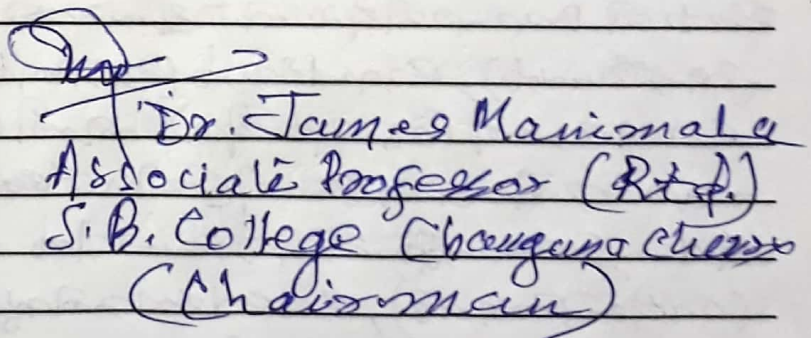 Dr. James Manimala
Associate Professor (Rtd.)
S.B. College Changanacherry
(Chairman)